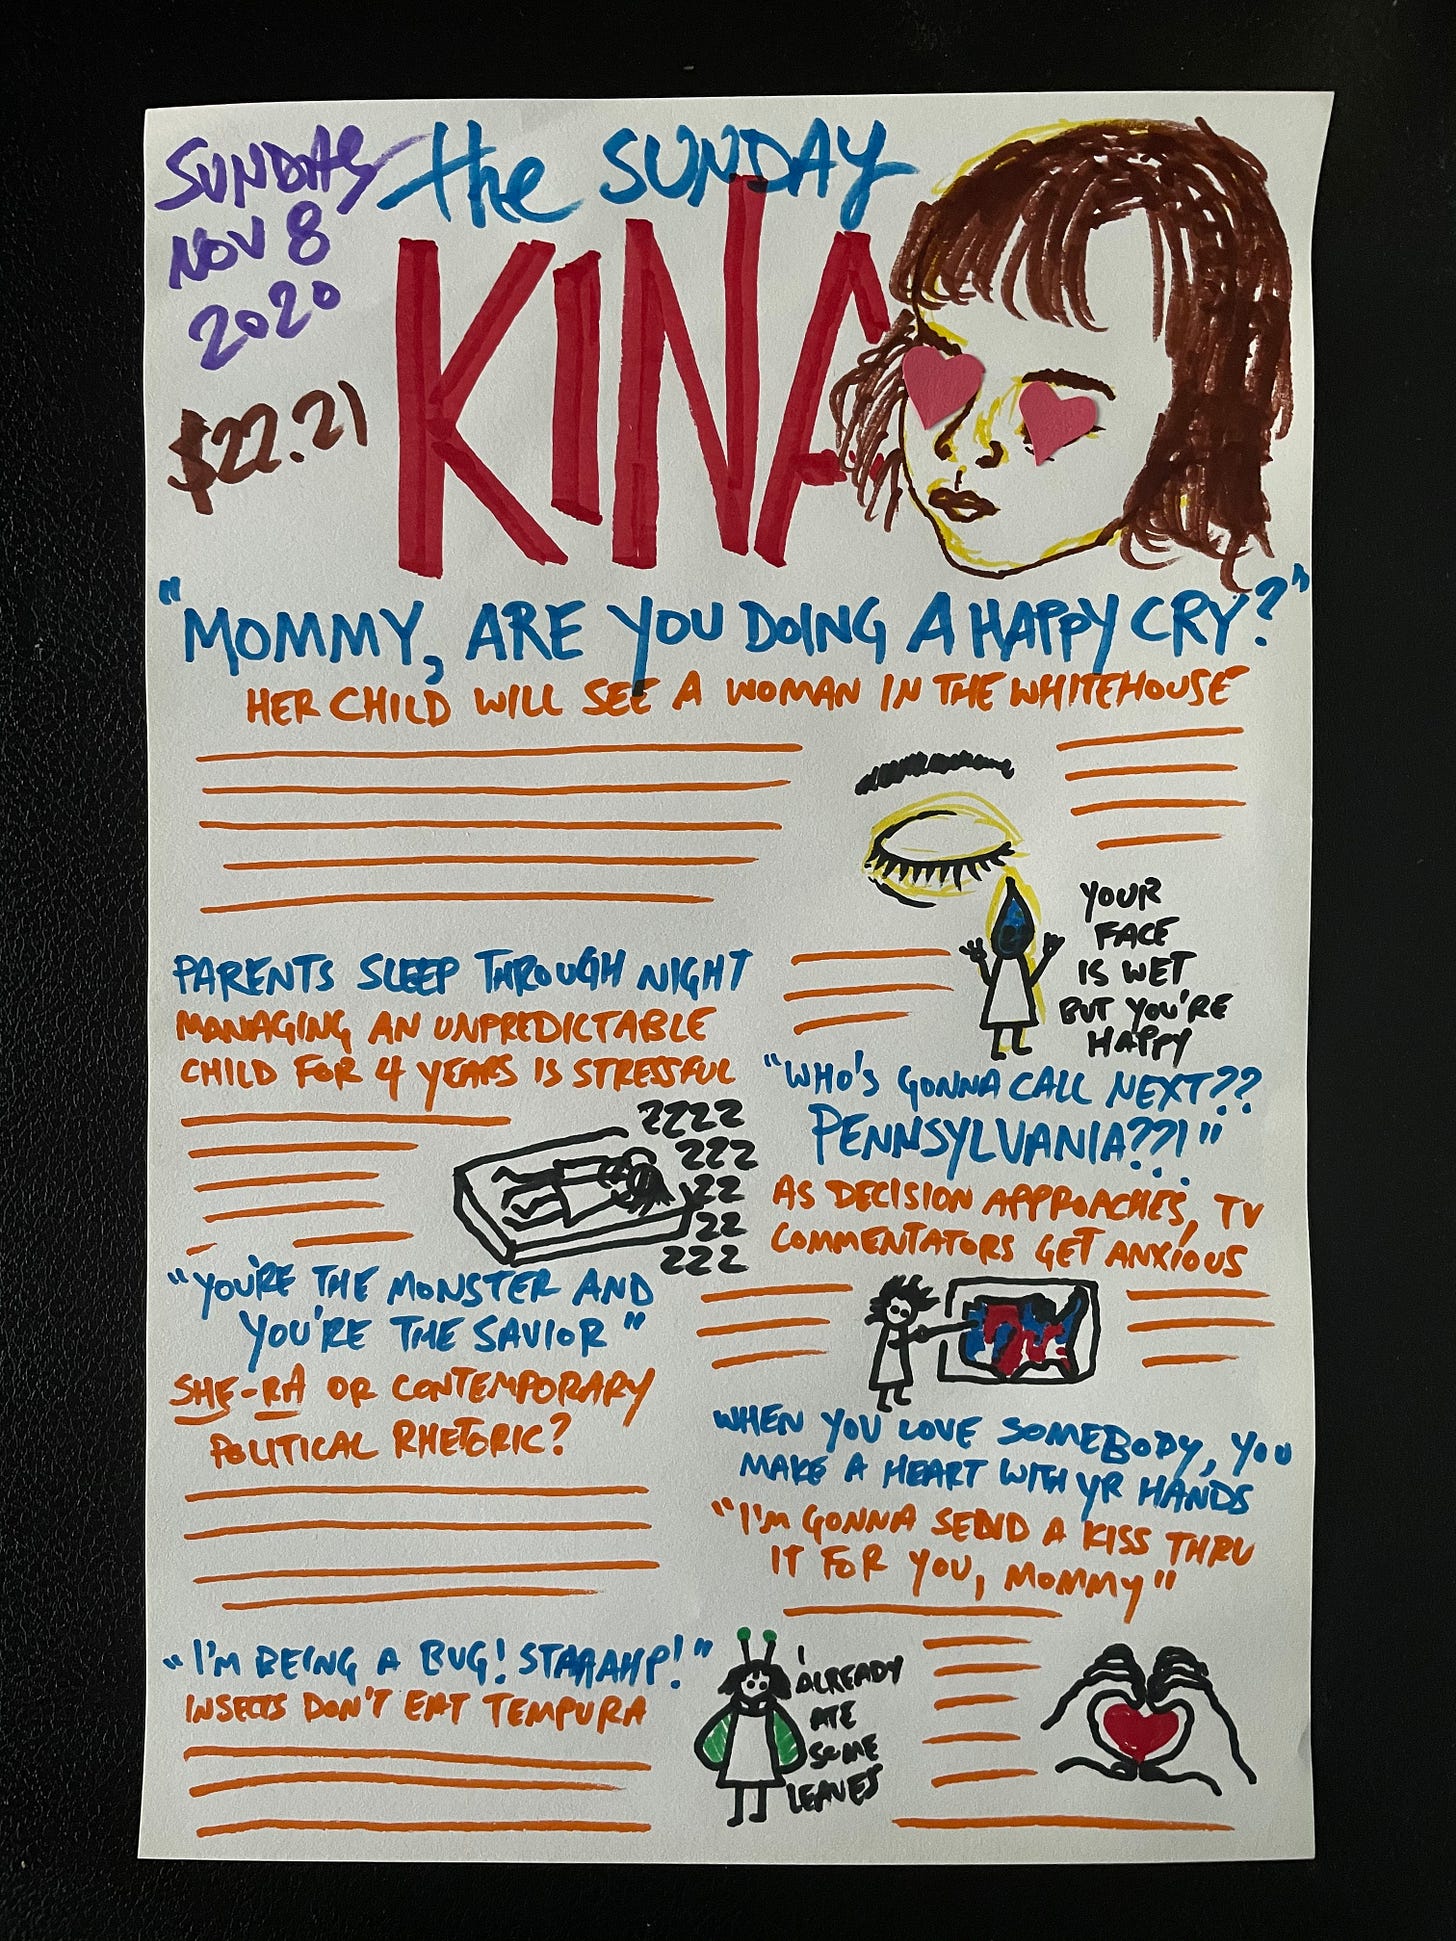 SUNDAY
NOV 8
2020
$22.21
the SUNDAY
KINA
"MOMMY, ARE YOU DOING A HAPPY CRY?"
HER CHILD WILL SEE A WOMAN IN THE WHITEHOUSE
YOUR
FACE
IS WET
BUT YOU'RE
HAPPY
PARENTS SLEEP THROUGH NIGHT
MANAGING AN UNPREDICTABLE
CHILD FOR 4 YEARS IS STRESSFUL
ZZZZ
ZZZ
ZZ
ZZ
ZZZ
"WHO'S GONNA CALL NEXT??
PENNSYLVANIA??!"
AS DECISION APPROACHES, TV
COMMENTATORS GET ANXIOUS
"YOU'RE THE MONSTER AND
YOU'RE THE SAVIOR"
SHE-RA OR CONTEMPORARY
POLITICAL RHETORIC?
WHEN YOU LOVE SOMEBODY, YOU
MAKE A HEART WITH YR HANDS
"I'M GONNA SEND A KISS THRU
IT FOR YOU, MOMMY"
"I'M BEING A BUG! STAAAHP!"
INSECTS DON'T EAT TEMPURA
I
ALREADY
ATE
SOME
LEAVES